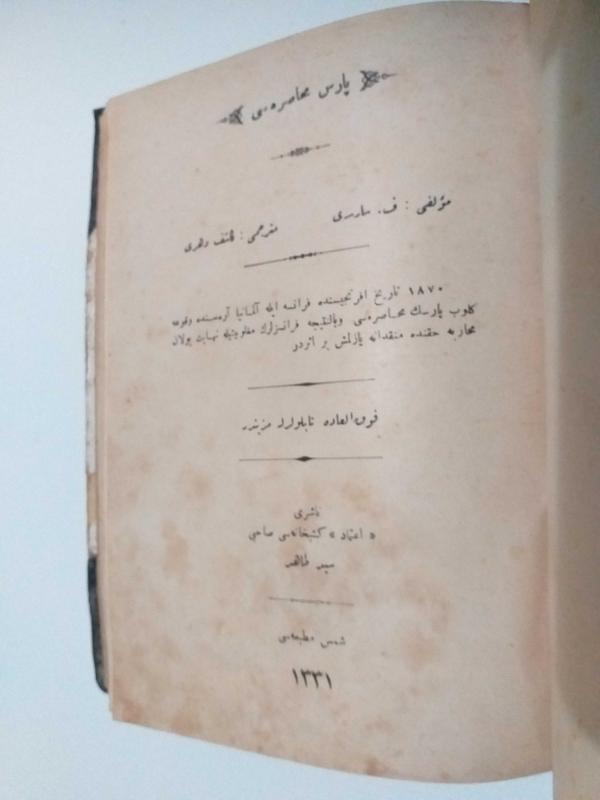 پارس محاصره‌سی
مؤلفی : ف. سارسی
مترجمی : کاشف دهری
١٨٧٠ تاریخ افرنجیسنده فرانسه ایله آلمانیا آره‌سنده وقوعه
کلوب پارسك محاصره‌سی وبالنتیجه فرانسزلرك مغلوبیتیله نهایت بولان
محاربه حقنده منتقدانه یازلمش بر اثردر
فوق‌العاده تابلولرله مزیندر
ناشری
« اعتماد » کتبخانه‌سی صاحبی
سید طاهر
شمس مطبعه‌سی
١٣٣١